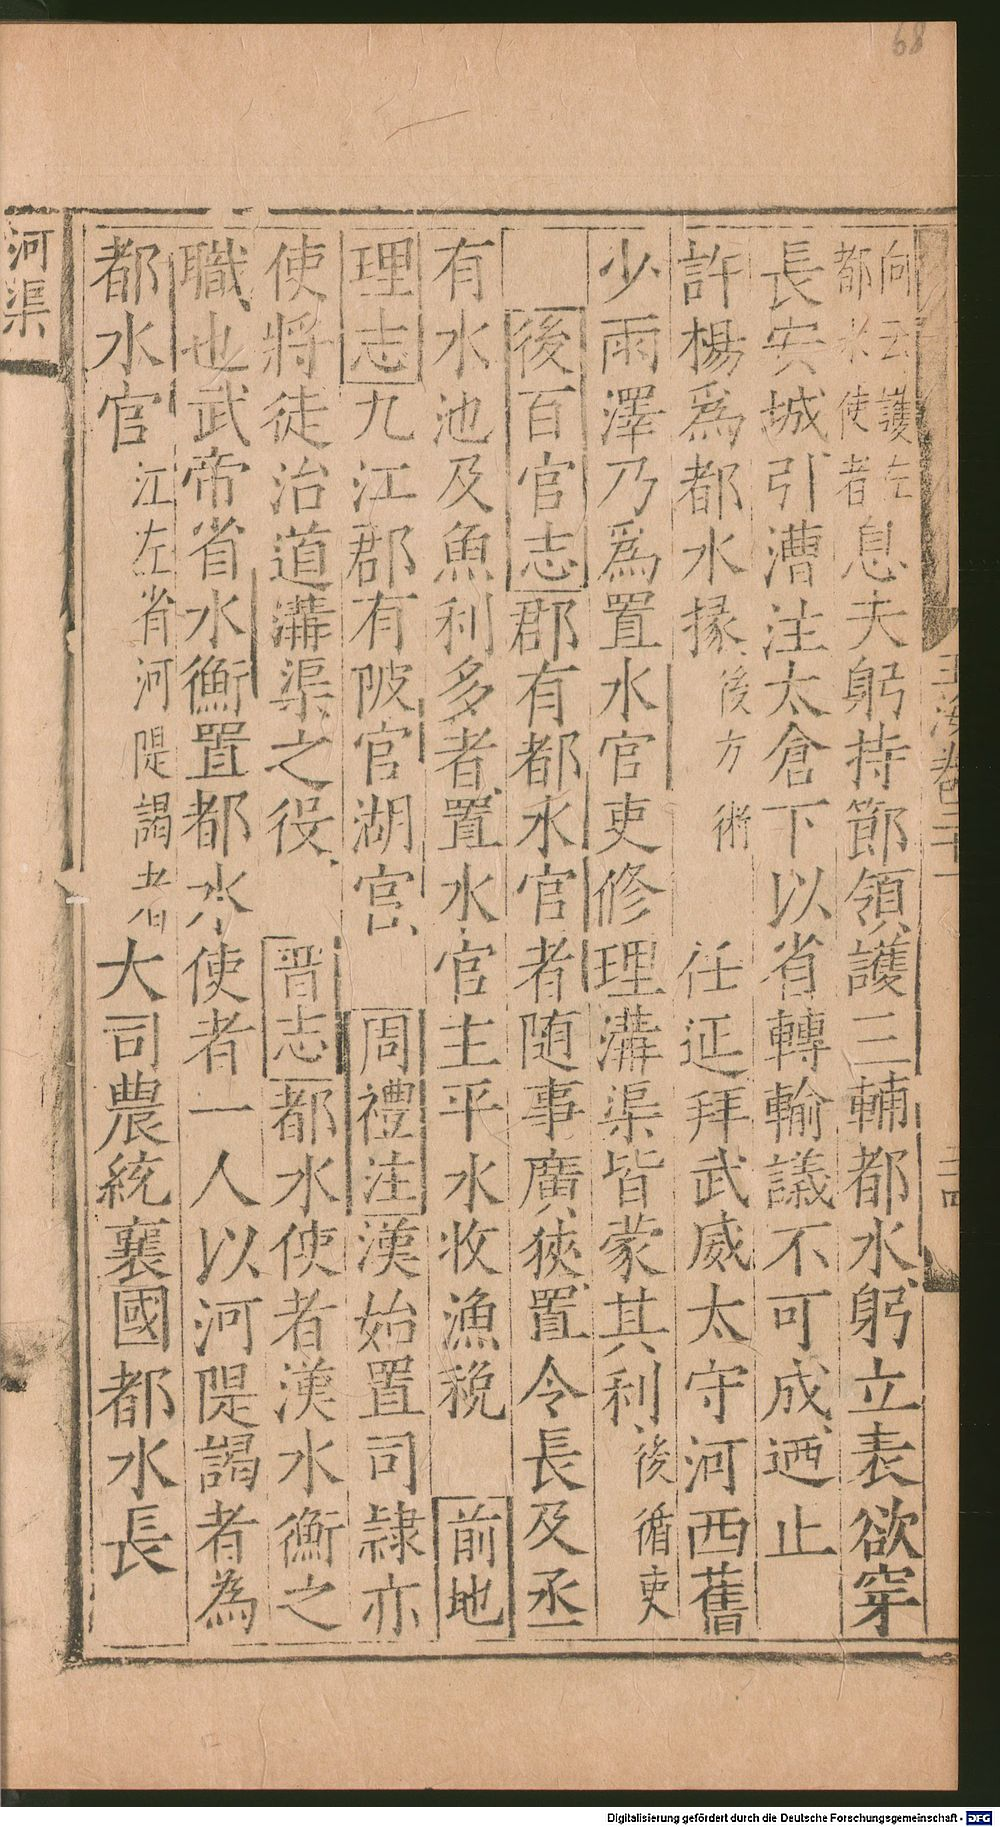 68
向云護左
都水使者息夫躬持節領護三輔都水躬立表欲穿
長安城引漕注太倉下以省轉輸議不可成迺止
許楊爲都水掾後方術 任延拜武威太守河西舊
少雨澤乃爲置水官吏修理溝渠皆蒙其利後循吏
後百官志郡有都水官者随事廣狹置令長及丞
有水池及魚利多者置水官主平水收漁稅 前地
理志九江郡有陂官湖官 周禮注漢始置司隸亦
使將徒治道溝渠之役 晋志都水使者漢水衡之
職也武帝省水衡置都水使者一人以河隄謁者為
都水官江左省河隄謁者大司農統襄國都水長
河渠
玉海卷二十一
Digitalisierung gefördert durch die Deutsche Forschungsgemeinschaft - DFG